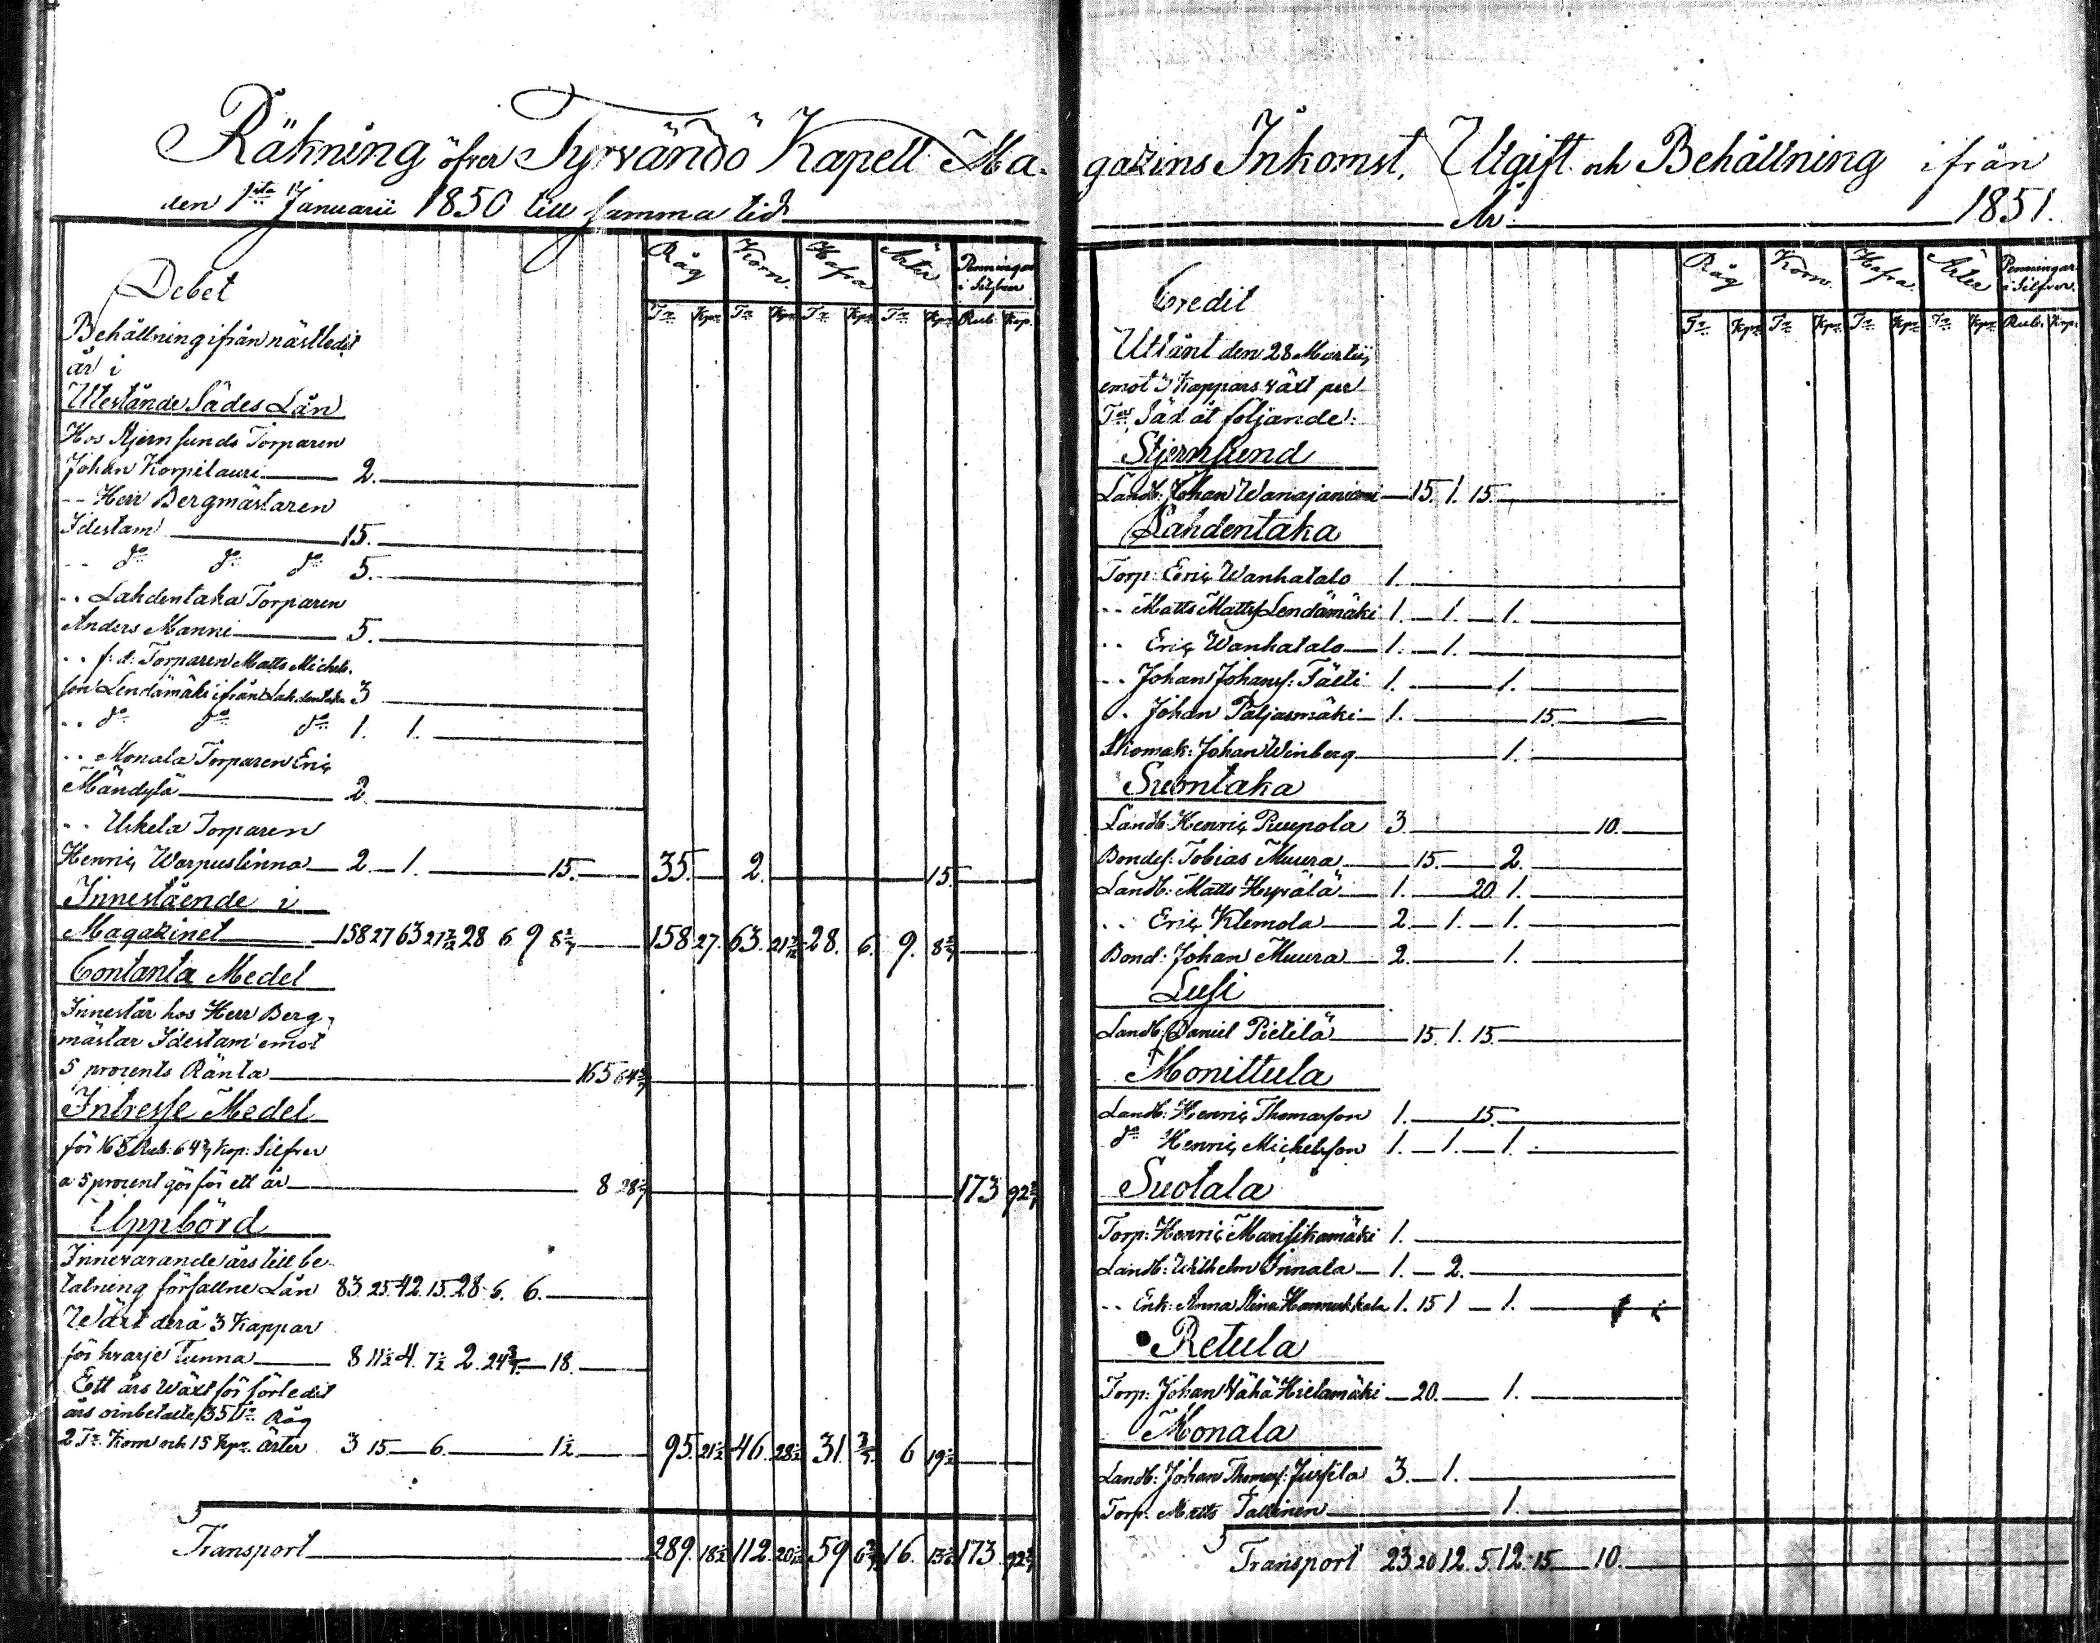 Räkning öfver Tyrvändö Kapell Ma-
den 1sta Januarii 1850 till samma tid
Råg Korn Hafra Ärter Penningar i Silfver
Tr Kpr Tr Kpr Tr Kpr Tr Kpr Rub. Kop.
Debet
Behållning ifrån nästledit
år i
Utestånde Sädes Lån
Hos Stjernsunds Torparen
Johan Korpilauri 2.
-- Herr Bergmästaren
Idestam 15.
-- do do do 5.
-- Lahdentaka Torparen
Anders Manni 5.
-- f: d: Torparen Matts Michels-
son Lendämäki ifrån Lahdentaka 3
-- do do do 1. 1.
-- Monala Torparen Eric
Mändylä 2.
-- Uskela Torparen
Henric Warpuslinna 2 1. 15. 35. 2. 15.
Innestående i
Magazinet 158 27 63 21 7/12 28 6 9 8 2/7 158 27. 63. 21 7/12 28. 6. 9. 8 2/7
Contanta Medel
Innestår hos Herr Berg-
mästar Idestam emot
5 procents Ränta 165 64 2/7
Intresse Medel
för 165 Rub: 64 2/7 Kop: Silfver
a 5 procent gör för ett år 8 28 2/7 173 92 4/7
Uppbörd
Innevarande års till be-
talning förfallne Lån 83 25 42. 15. 28. 6. 6.
Wäxt derå 3 Kappar
för hvarje Tunna 8 11 1/2 4. 7 1/2 2. 24 3/5 18.
Ett års Wäxt för förledit
års oinbetalte 35 Tr Råg
2 Tr Korn och 15 Kpr ärter 3 15 6. 1 1/2 95. 21 1/2 46. 28 1/2 31. 3/5 6 19 1/2
Transport 289. 18 1/2 112. 20 1/12 59 6 3/5 16. 173 92 4/7
gazins Inkomst, Utgift och Behållning ifrån
År 1851.
Råg Korn. Hafra. Ärter Penningar i Silfver.
Tr Kpr Tr Kpr Tr Kpr Tr Kpr Rub: Kop:
Credit
Utlånt den 28 Martii,
emot 3 Kappars växt per
Tr Säd åt följande:
Stjernsund
Landb: Johan Wanajaniemi 15. 1. 15.
Lahdentaka
Torp: Eric Wanhatalo 1.
-- Matts Mattss: Lendämäki 1. 1. 1.
-- Eric Wanhatalo 1. 1.
-- Johan Johanss: Tätti 1. 1.
-- Johan Paljasmäki 1. 15.
Skomak: Johan Winberg 1.
Suontaka
Landb: Henric Puupola 3 10.
Bondes: Tobias Muura 15. 2.
Landb: Matts Hyvälä 1. 20 1.
-- Eric Klemola 2. 1. 1.
Bond: Johan Muura 2. 1.
Lusi
Landb: Daniel Pietilä 15. 1. 15.
Monittula
Landb: Henric Thomasson 1. 15.
do Henric Michelsson 1. 1. 1.
Suotala
Torp: Henric Mansikamäki 1.
Landb: Wilhelm Innala 1. 2.
-- Enk: Anna Stina Hannukkala 1. 15 1 1.
Retula
Torp: Johan Vähä Hietamäki 20. 1.
Monala
Landb: Johan Thomass: Jussila 3. 1.
Torp: Matts Tallinen 1.
Transport 23 20 12. 5. 12. 15 10.